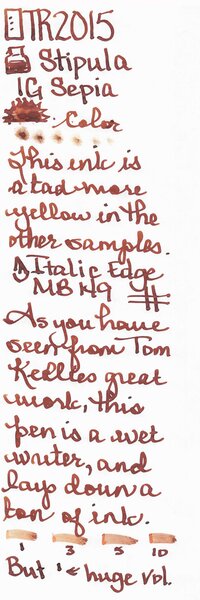 TR2015
Stipula
IG Sepia
Color
This ink is
a tad more
yellow in the
other samples.
Italic Edge
MB 149 #
As you have
seen from Tom
Kellies great
work, this
pen is a wet
writer, and
lays down a
ton of ink.
1 3 5 10
But 1 ← huge vol.